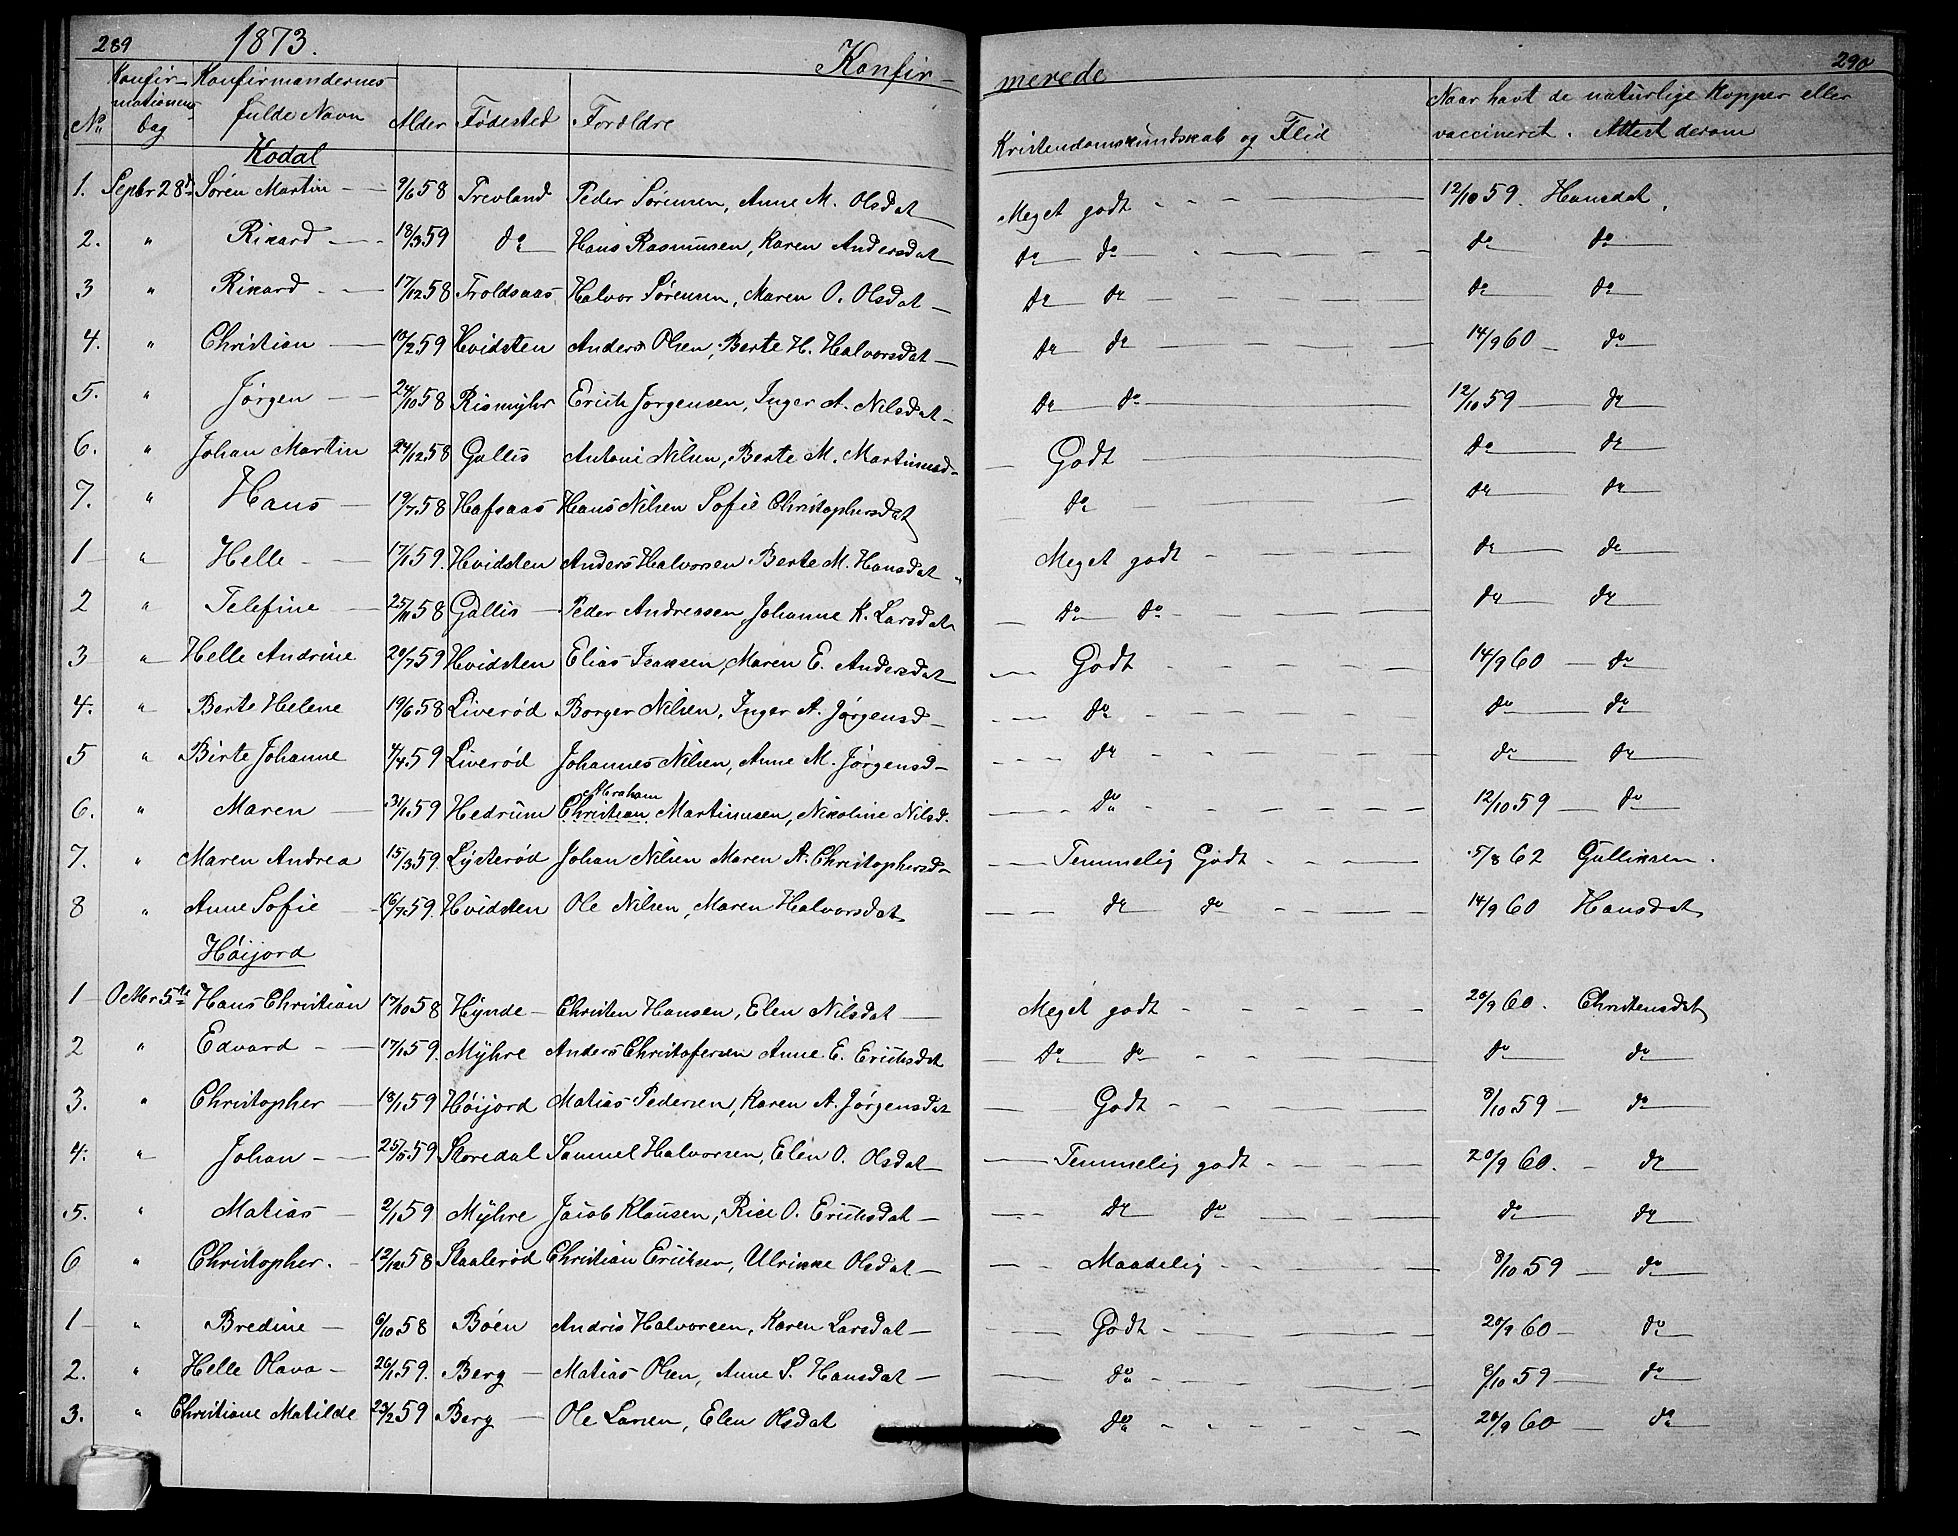 289 1873. Konfir-
merede 290
No Konfirmationens Dag Konfirmandernes fulde Navn Alder Fødested Forældre Kristendomskundskab og Flid Naar havt de naturlige Kopper eller vaccineret. Attest derom
Kodal
1. Septbr 28d Søren Martin 9/6 58 Trevland Peder Sørensen, Anne M. Olsdat Meget godt 12/10 59. Hansdat.
2. " Rikard 18/3 59 do Hans Rasmussen, Karen Andersdat do do do do
3 " Rikard 17/12 58 Troldsaas Halvor Sørensen, Maren O. Olsdat do do do do
4. " Christian 10/2 59 Hvidsten Anders Olsen, Berte H. Halvorsdat do do 14/9 60 do
5. " Jørgen 24/10 58 Rismyhr Erich Jørgensen, Inger A. Nilsdat do do 12/10 59 do
6. " Johan Martin 24/12 58 Gallis Antoni Nilsen, Berte M. Martinusd Godt do do
7. " Hans 19/7 58 Hafsaas Hans Nilsen Sofie Christophersdat do do do
1 " Helle 17/1 59. Hvidsten Anders Halvorsen Berte M. Hansdat Meget godt do do
2 " Telefine 25/11 58 Gallis Peder Andreasen, Johanne K. Larsdat do do do do
3 " Helle Andrine 20/7 59 Hvidsten Elias Isaksen, Maren E. Andersdat Godt 14/9 60 do
4. " Berte Helene 19/6 58 Liverød Borger Nilsen, Inger A. Jørgensd do do do
5 " Birte Johanne 4/4 59 Liverød Johannes Nilsen, Anne M. Jørgensd do do do
6. " Maren 31/1 59 Hedrum Abraham Christian Martinusen, Nikoline Nilsd. do 12/10 59 do
7. " Maren Andrea 15/3 59. Lysterød Johan Nilsen Maren A. Christophersd Temmelig Godt 5/8 62 Gulliksen.
8 " Anne Sofie 16/7 59. Hvidsten Ole Nilsen, Maren Halvorsdat do do 14/9 60 Hansdat
Høijord
1 Octbr 5te Hans Christian 17/10 58 Hynde Christen Hansen, Elen Nilsdat Meget godt 20/9 60. Christensdat
2 " Edvard 17/1 59. Myhre Anders Christofersen Anne E. Erichsdat do do do do
3. " Christopher 18/1 59 Høijord Matias Pedersen, Karen A. Jørgensdat Godt 8/10 59 do
4. " Johan 59 Skoredal Samuel Halvorsen, Elen O. Olsdat Temmelig godt 20/9 60. do
5. " Matias 2/1 59 Myhre Jacob Klausen, O. Erichsdat do do do do
6 " Christopher. 12/12 58 Skaalerød Christian Eriksen, Ulrikke Olsdat Maadelig 8/10 59 do
1 " Bredine 6/10 58 Bøen Andris Halvorsen, Karen Larsdat Godt 20/9 60 do
2. " Helle Olava 26/1 59. Berg Matias Olsen, Anne S. Hansdat do 8/10 59 do
3. " Christiane Matilde 23/2 59 Berg Ole Larsen, Elen Olsdat do 20/9 60 do